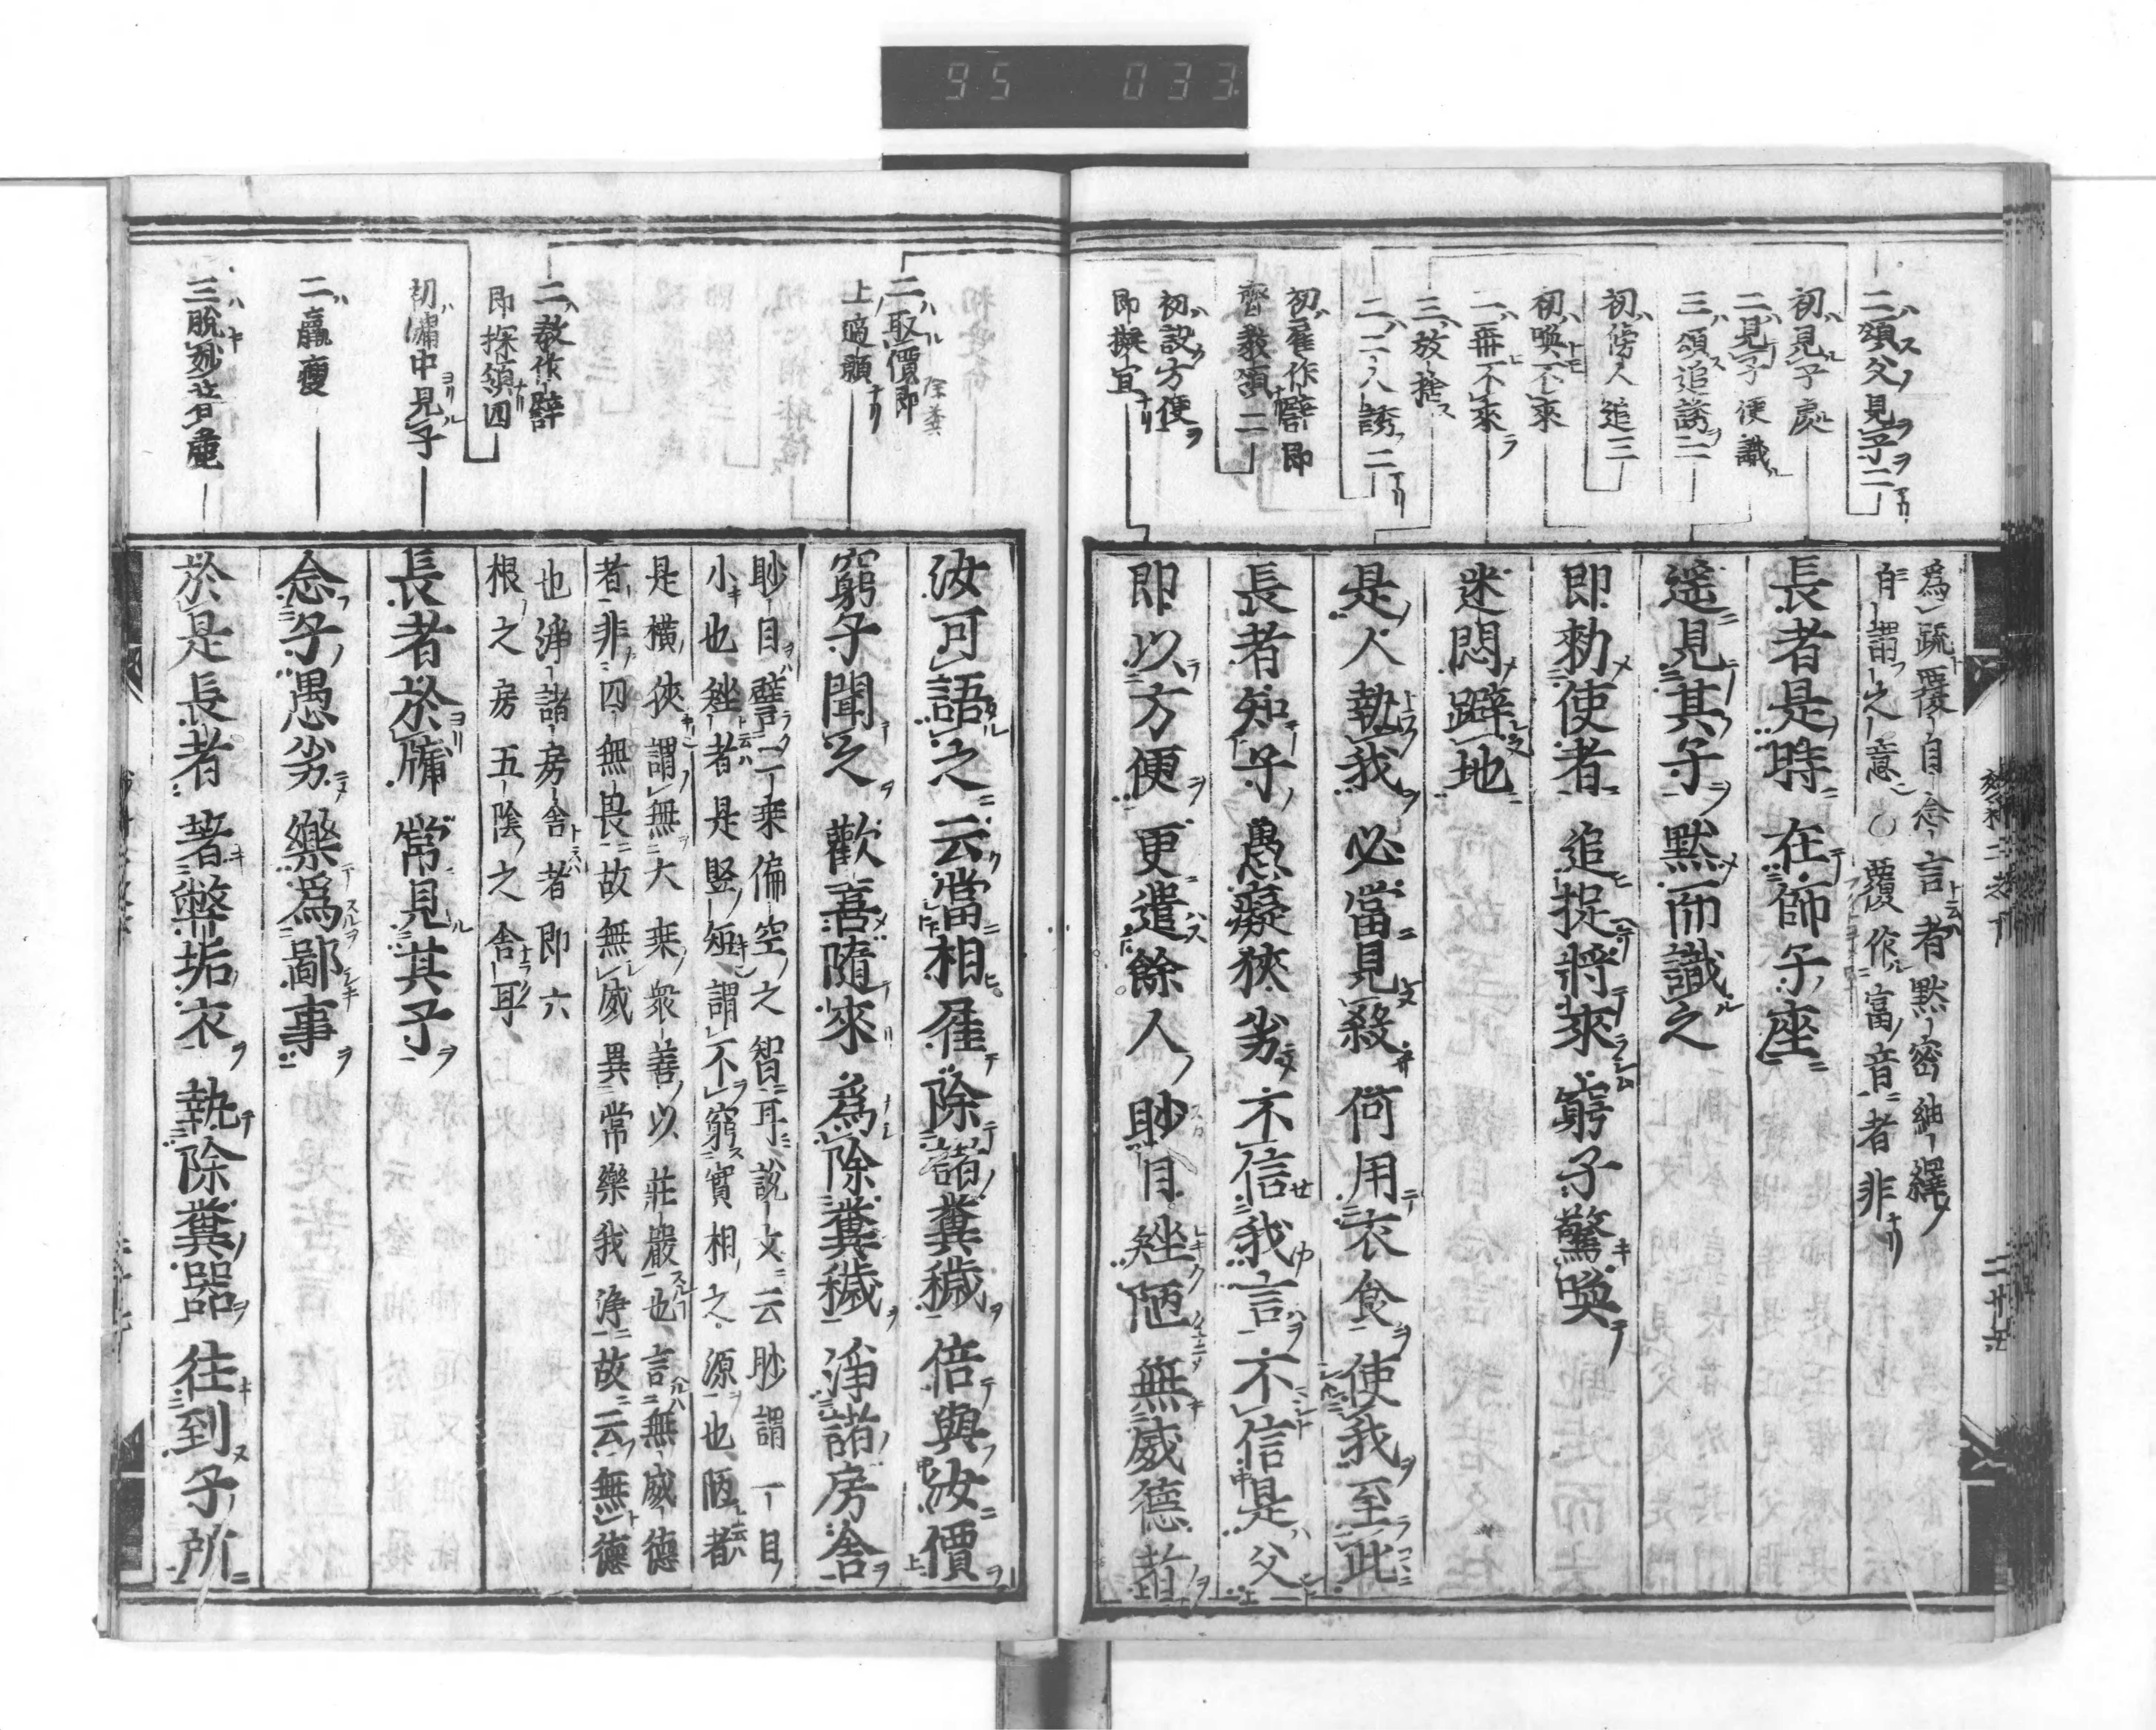 95 033
二頌父見子二
初見子處
二見子便識
三頌追誘二
初傍人追三
初喚不來
二再不來
三放捨
二二人誘二
初雇作譬即
齊敎領二
初設方便
即擬宜
爲疏覆自念言者默密紬繹
自謂之意○覆作富音者非
長者是時 在師子座
遥見其子 默而識之
即勅使者 追捉將來 窮子驚喚
迷悶躃地
是人執我 必當見殺 何用衣食 使我至此
長者知子 愚癡狹劣 不信我言 不信是父
即以方便 更遣餘人 眇目矬陋 無威德者
二取價即
上適願
除糞
二敎作譬
即探領四
初牖中見子
二羸瘦
三脫妙著麁
汝可語之 云當相雇 除諸糞穢 倍與汝價
窮子聞之 歡喜隨來 爲除糞穢 淨諸房舍
眇目譬二乘偏空之智耳說文云眇謂一目
小也矬者是豎短謂不窮實相之源也陋者
是橫狹謂無大乘衆善以莊嚴也言無威德
者非四無畏故無威異常樂我淨故云無德
也淨諸房舍者即六
根之房五陰之舍耳
長者於牖 常見其子
念子愚劣 樂爲鄙事
於是長者 著弊垢衣 執除糞器 往到子所